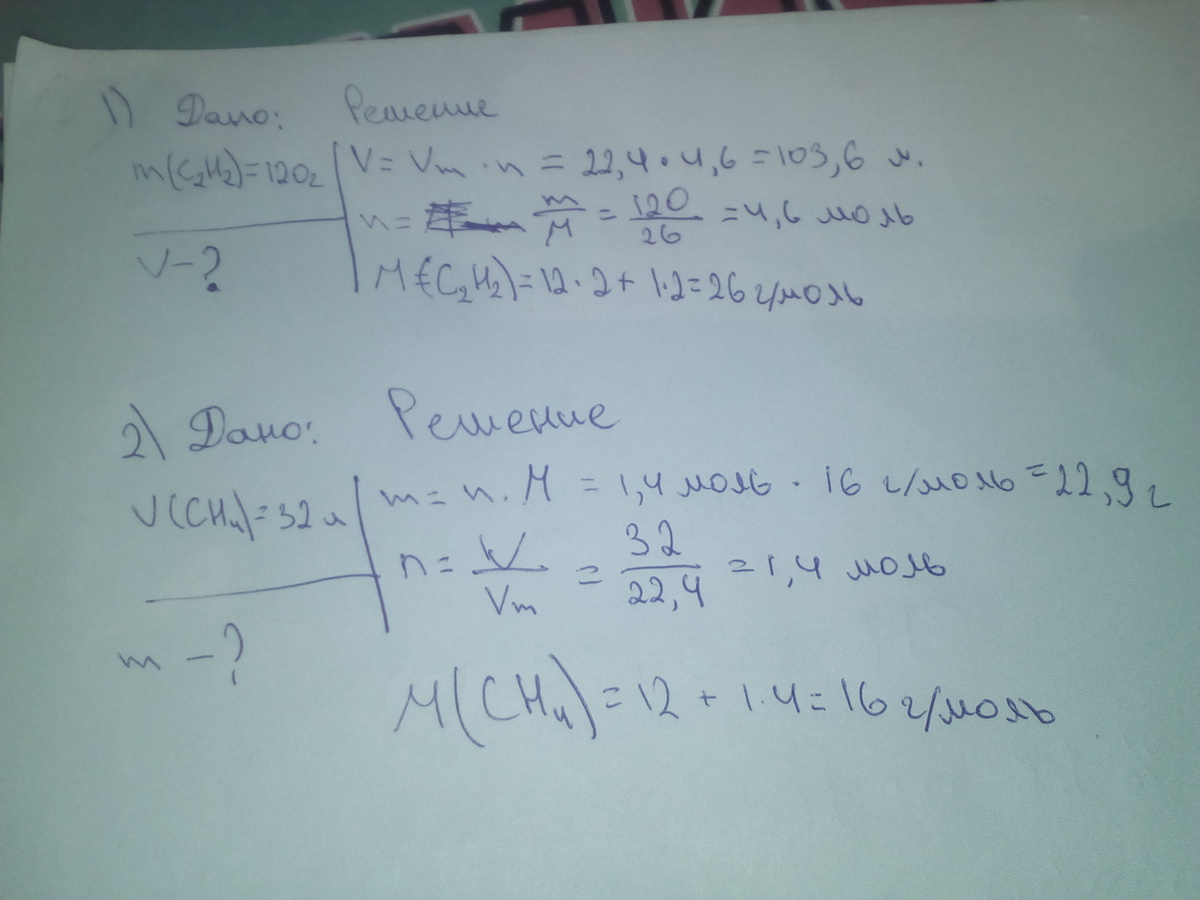 1) Дано: Решение
m(C₂H₂)=120г V = Vm · n = 22,4 · 4,6 = 103,6 л.
n = m/M = 120/26 = 4,6 моль
V-?
M(C₂H₂)=12·2+1·2=26 г/моль
2) Дано: Решение
V(CH₄)=32 л m = n · M = 1,4 моль · 16 г/моль = 22,9 г
n = V/Vm = 32/22,4 = 1,4 моль
m -?
M(CH₄)=12 + 1·4=16 г/моль